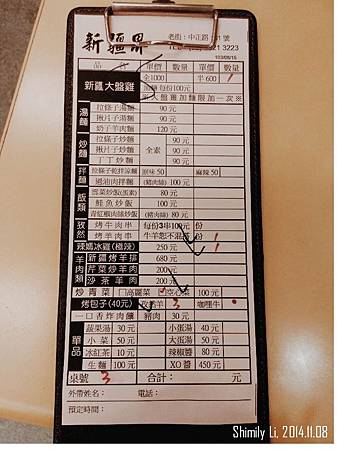 新疆
老街：中正路
3223
103/09/15
品名 單價 數量 單價 數量
新疆大盤雞 全1000 半600 1
每份100元
※大盤雞加麵限加一次※
湯麵 拉條子湯麵 90元
揪片子湯麵 90元
奶子羊肉麵 120元
炒麵 拉條子炒麵 全素 90元
揪片子炒麵 90元
丁丁炒麵 90元
拌麵 拉條子乾拌涼麵 原味50 麻辣50
過油肉拌麵 (豬肉師) 100元
飯類 雪菜炒飯(蛋素) 80元
鮭魚炒飯 100元
青紅椒肉絲炒飯 (豬肉師) 80元
孜然 烤牛肉串 每份3串100元 份
烤羊肉串 份
辣媽冰雞(極辣) 250元 1
羊肉類 新疆烤羊排 680元
芹菜炒羊肉 200元
沙茶羊肉 200元
炒青菜 □高麗菜 □空心菜 100元
烤包子(40元) 3 咖哩牛
一口香炸肉餅 豬肉 30元
單品 蔬果湯 30元 小蛋湯 40元
小菜 50元 大蛋湯 50元
冰紅茶 10元 辣椒醬 80元
生麵 100元 XO醬 450元
桌號 3 合計： 元
外帶姓名： 電話：
預定時間：
Shimily Li, 2014.11.08